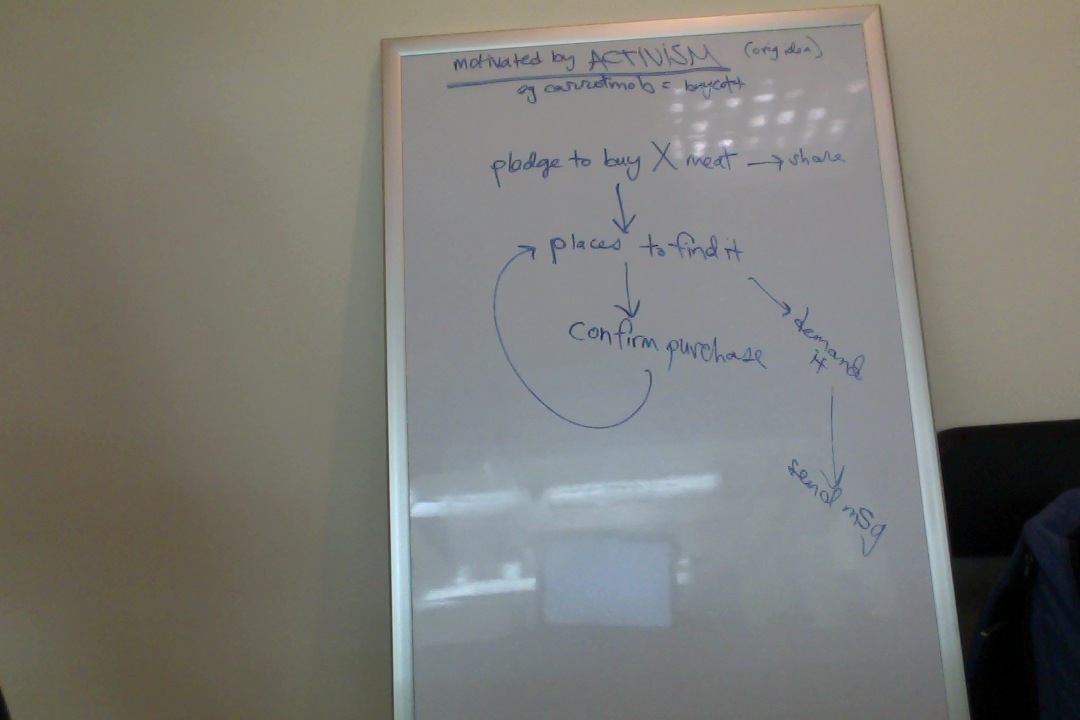 motivated by ACTIVISM (orig idea)
eg carrotmob = buycott
pledge to buy X meat → share
places to find it
confirm purchase
demand it
send msg